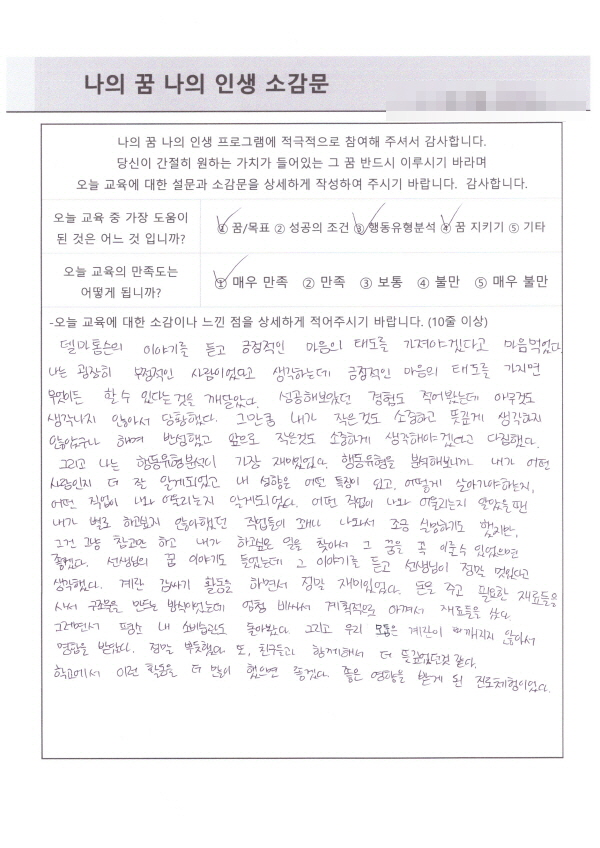 나의 꿈 나의 인생 소감문
나의 꿈 나의 인생 프로그램에 적극적으로 참여해 주셔서 감사합니다.
당신이 간절히 원하는 가치가 들어있는 그 꿈 반드시 이루시기 바라며
오늘 교육에 대한 설문과 소감문을 상세하게 작성하여 주시기 바랍니다. 감사합니다.
오늘 교육 중 가장 도움이
된 것은 어느 것 입니까?
① 꿈/목표 ② 성공의 조건 ③ 행동유형분석 ④ 꿈 지키기 ⑤ 기타
오늘 교육의 만족도는
어떻게 됩니까?
① 매우 만족 ② 만족 ③ 보통 ④ 불만 ⑤ 매우 불만
-오늘 교육에 대한 소감이나 느낀 점을 상세하게 적어주시기 바랍니다. (10줄 이상)
델마톰슨의 이야기를 듣고 긍정적인 마음의 태도를 가져야겠다고 마음먹었다.
나는 굉장히 부정적인 사람이었다고 생각하는데 긍정적인 마음의 태도를 가지면
무엇이든 할 수 있다는 것을 깨달았다. 성공해보았던 경험도 적어봤는데 아무것도
생각나지 않아서 당황했다. 그만큼 내가 작은것도 소중하고 뜻깊게 생각하지
않았구나 하며 반성했고 앞으로 작은것도 소중하게 생각해야겠다고 다짐했다.
그리고 나는 행동유형분석이 가장 재미있었다. 행동유형을 분석해보니까 내가 어떤
사람인지 더 잘 알게되었고 내 성향은 어떤 특징이 있고, 어떻게 살아가야하는지,
어떤 직업이 나와 어울리는지 알게되었다. 어떤 직업이 나와 어울리는지 알았을땐
내가 별로 하고싶지 않아했던 직업들이 꽤나 나와서 조금 실망하기도 했지만,
그건 그냥 참고만 하고 내가 하고싶은 일을 찾아서 그 꿈을 꼭 이룰수 있었으면
좋겠다. 선생님의 꿈 이야기도 들었는데 그 이야기를 듣고 선생님이 정말 멋있다고
생각했다. 계란 감싸기 활동을 하면서 정말 재미있었다. 돈을 주고 필요한 재료들을
사서 구조물을 만드는 방식이었는데 엄청 비싸서 계획적으로 아껴서 재료들을 샀다.
그러면서 평소 내 소비습관도 돌아봤다. 그리고 우리 모둠은 계란이 깨지지 않아서
명함을 받았다. 정말 뿌듯했다. 또, 친구들과 함께해서 더 뜻깊었던것 같다.
학교에서 이런 활동을 더 많이 했으면 좋겠다. 좋은 영향을 받게 된 진로체험이었다.